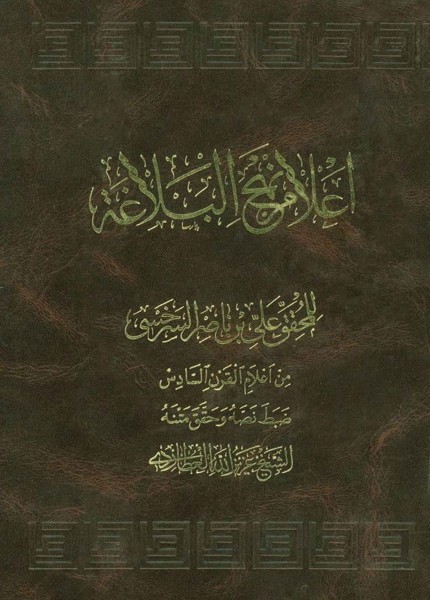 اعلام نهج البلاغة
للمحقق علي بن ناصر السرخسي
من اعلام القرن السادس
ضبط نصه وحقق متنه
الشيخ عزيز الله العطاردي